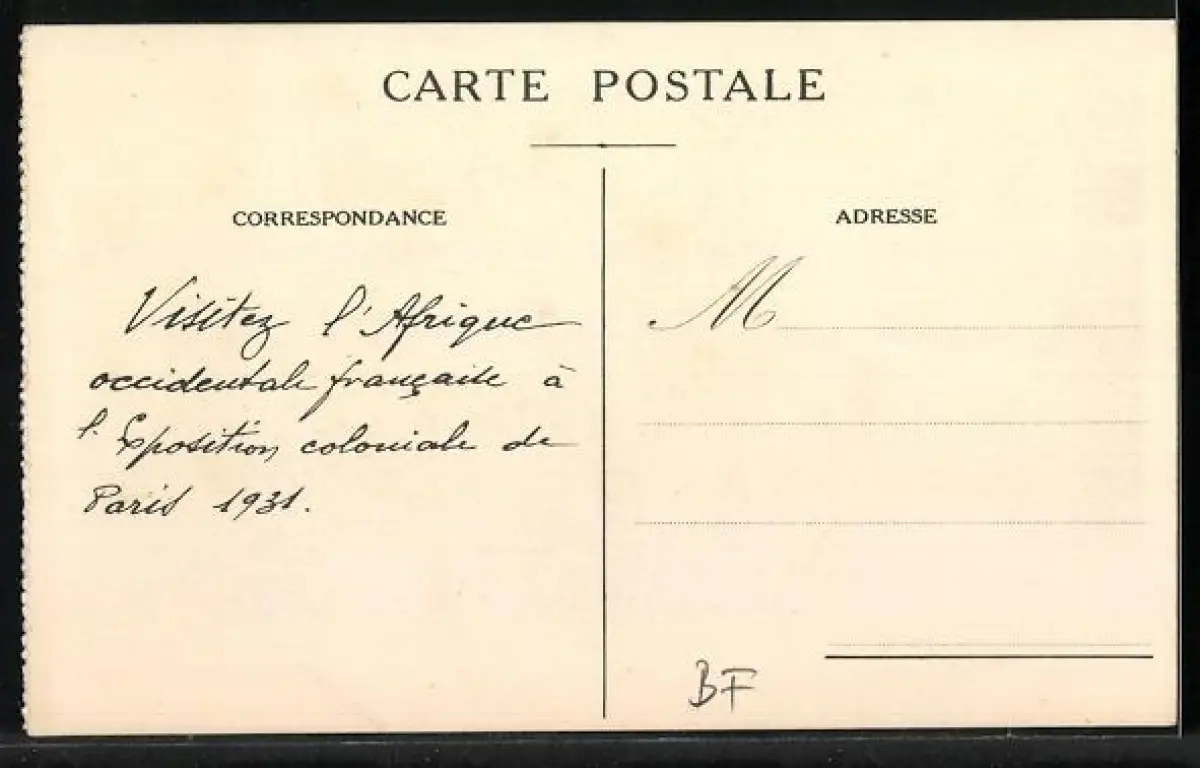 CARTE POSTALE
CORRESPONDANCE
Visitez l'Afrique
occidentale française à
l'Exposition coloniale de
Paris 1931.
ADRESSE
M
BF